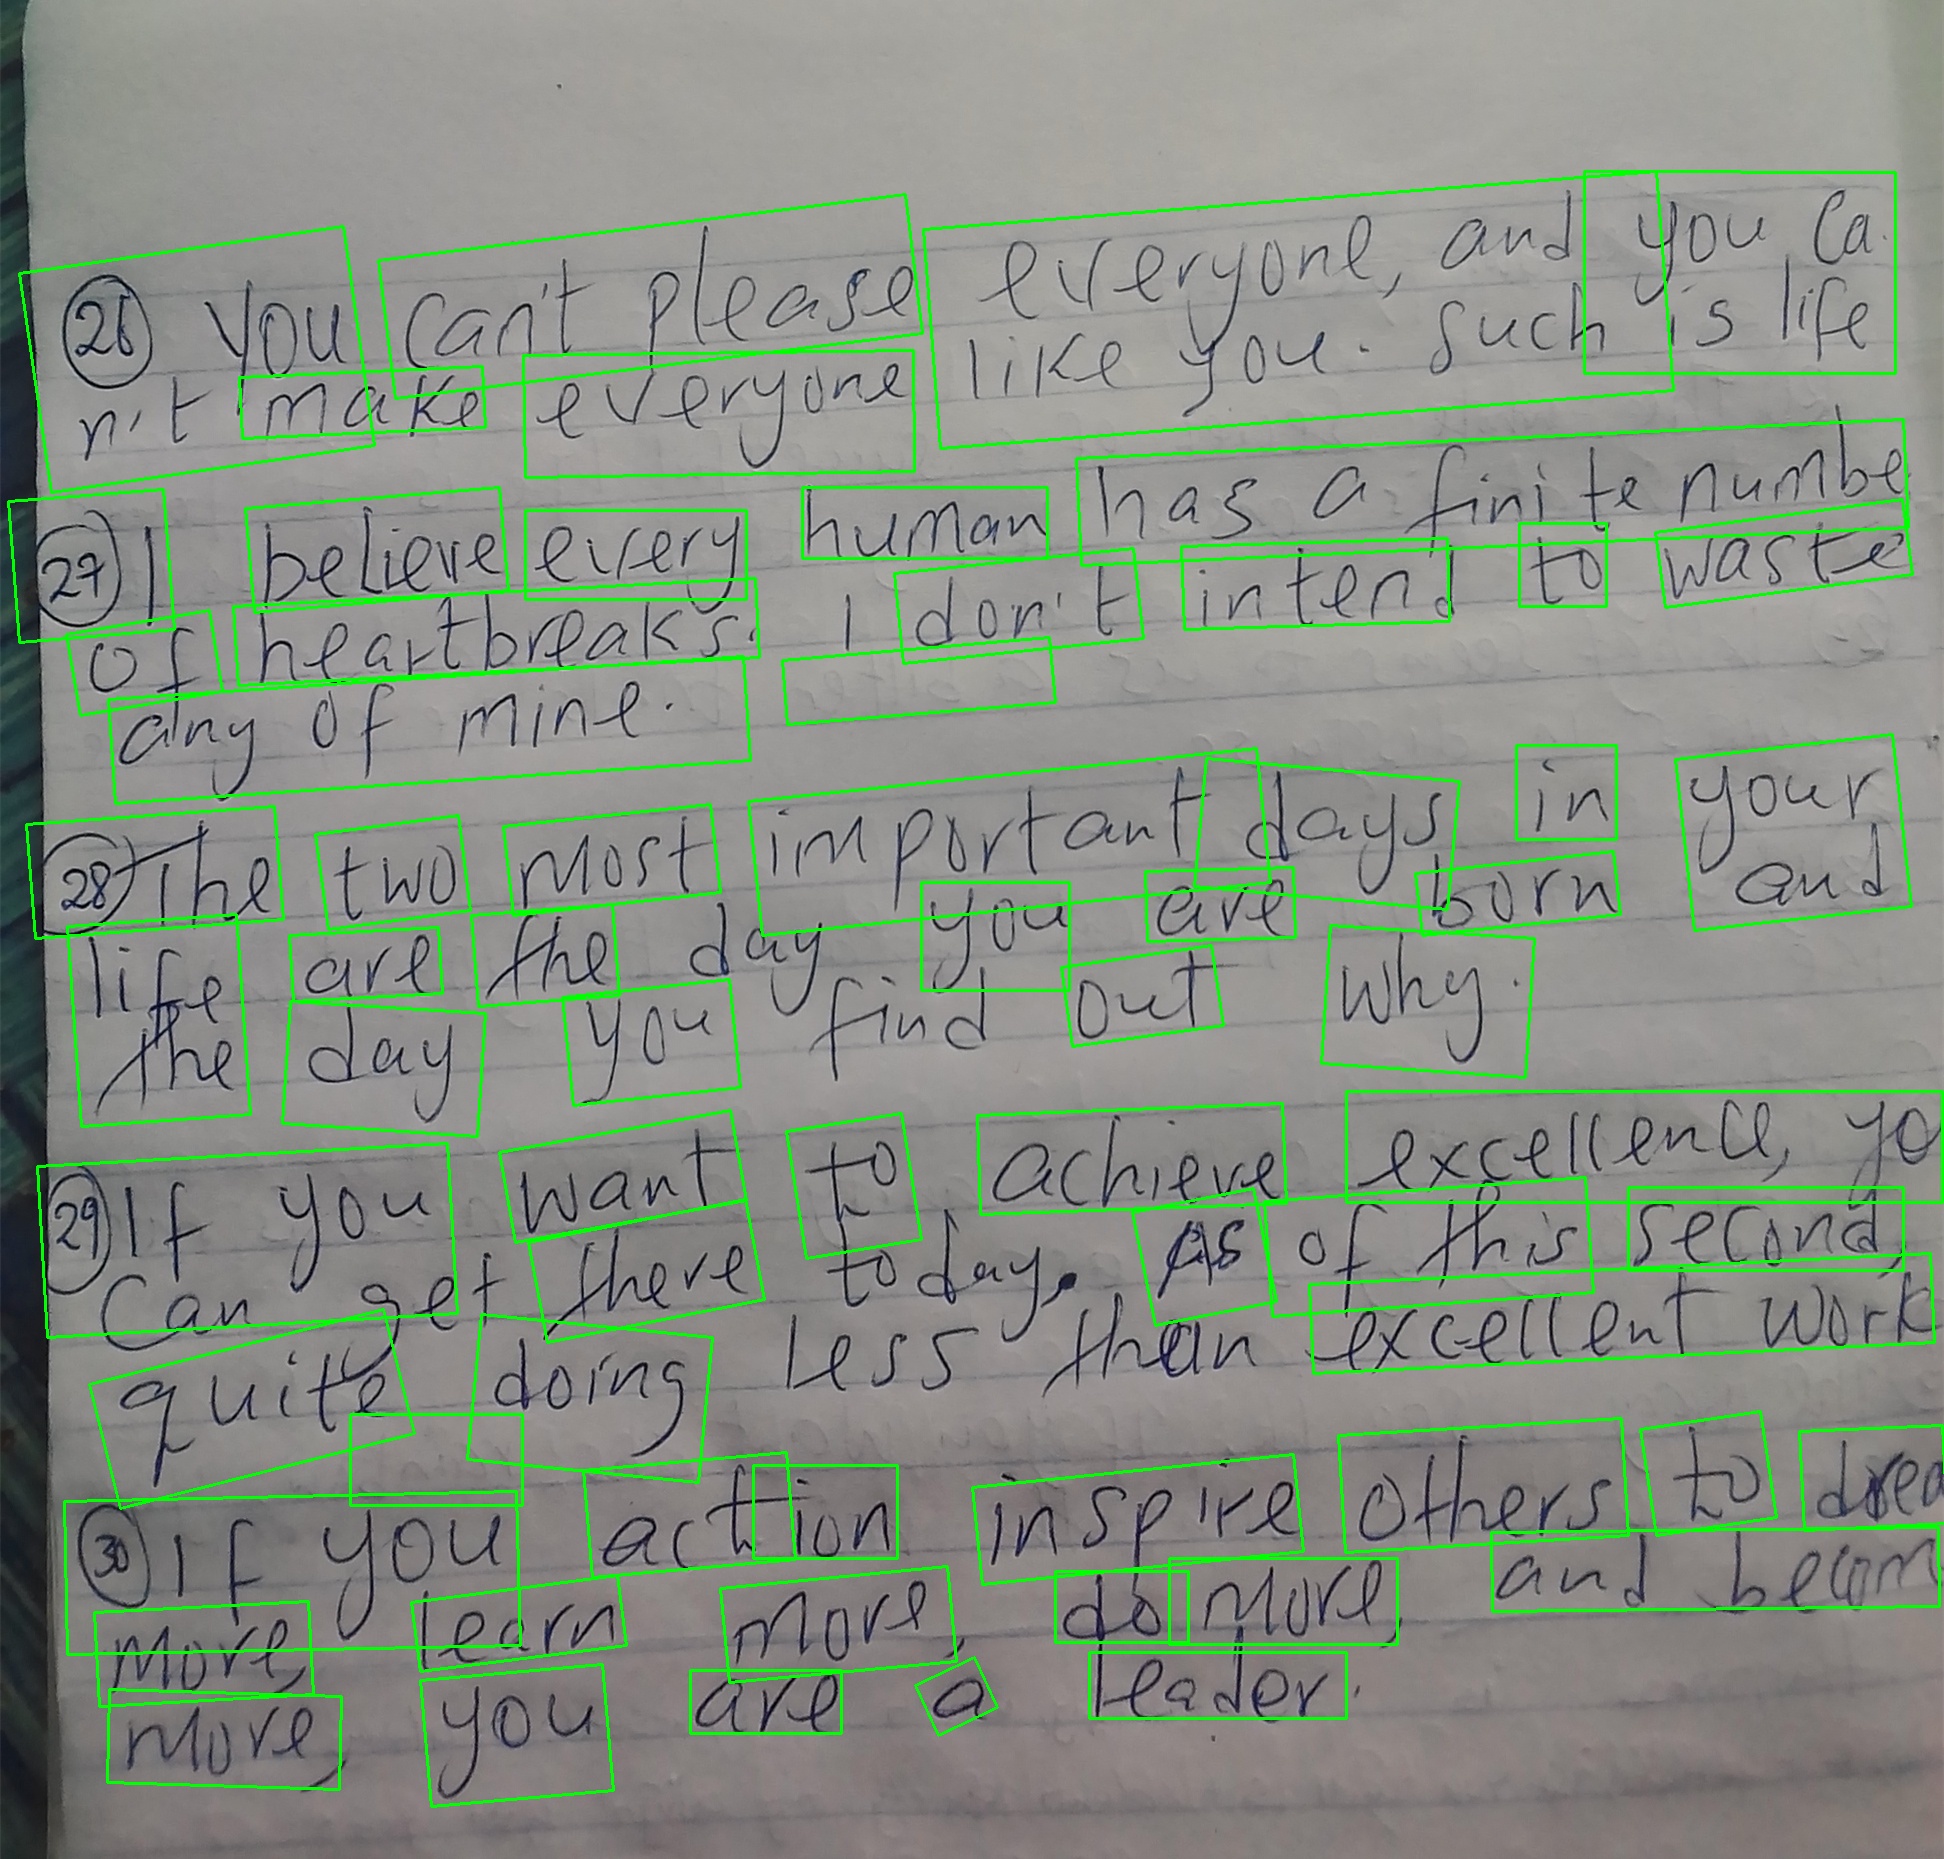 26 You can't please everyone, and you ca
n't make everyone like you. such is life
27 I believe every human has a finite numbe
of heartbreaks. I don't intend to waste
any of mine.
28 The two most important days in your
life are the day you are born and
the day you find out why.
29 If you want to achieve excellence, yo
can get there today. As of this second,
quite doing less than excellent work
30 If you action inspire others to drea
more, learn more, do more, and becom
more, you are a leader.